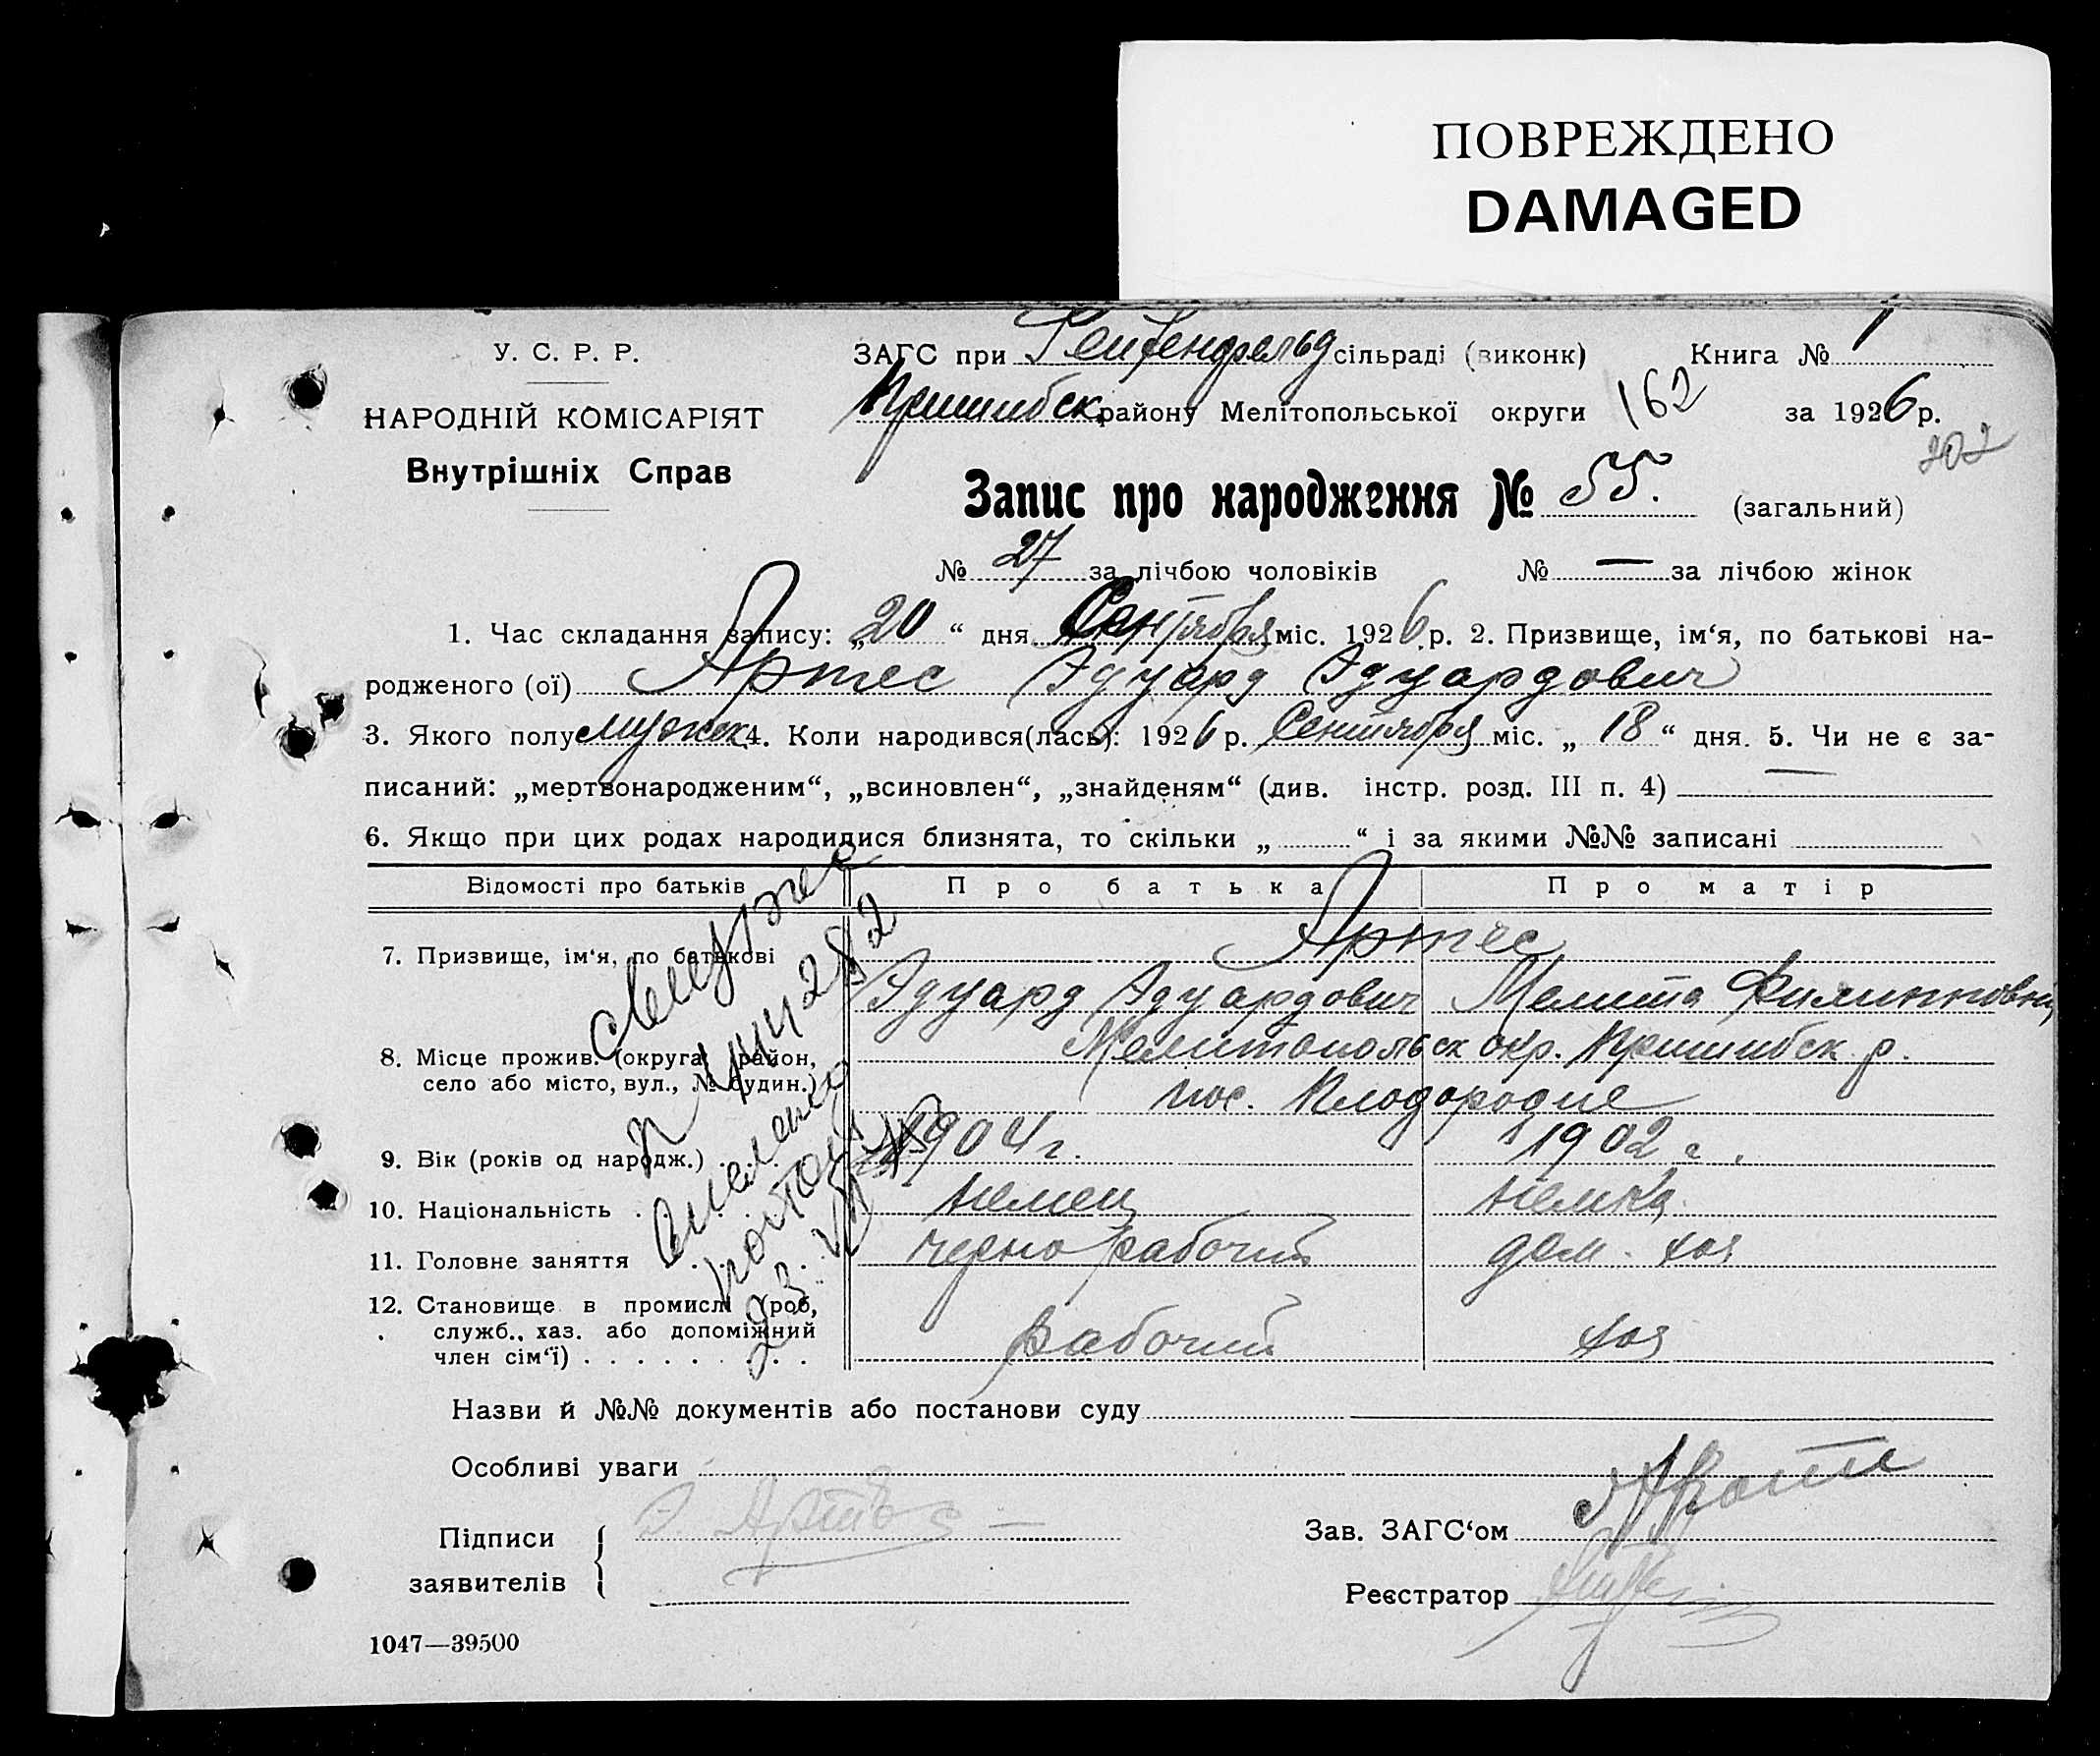 ПОВРЕЖДЕНО
DAMAGED
У. С. Р. Р.
НАРОДНІЙ КОМІСАРІЯТ
Внутрішніх Справ
ЗАГС при Гейденфельд сільраді (виконк) Книга № 1
Пришибск. району Мелітопольської округи 162 за 1926 р.
202
Запис про народження № 55. (загальний)
№ 27 за лічбою чоловіків № — за лічбою жінок
1. Час складання запису: „20“ дня Сентября міс. 1926 р. 2. Призвище, ім‘я, по батькові на-
родженого (ої) Артес Эдуард Эдуардович
3. Якого полу мужск 4. Коли народився(лась): 1926 р. Сентября міс. „18“ дня. 5. Чи не є за-
писаний: „мертвонародженим“, „всиновлен“, „знайденям“ (див. інстр. розд. III п. 4) —
6. Якщо при цих родах народилися близнята, то скільки „ “ і за якими №№ записані
Відомості про батьків Про батька Про матір
7. Призвище, ім‘я, по батькові Артес
Эдуард Эдуардович Мелита Филипповна
8. Місце прожив. (округа, район, Мелитопольск окр. Пришибск р.
село або місто, вул., № будин.) пос. Плодородие
9. Вік (років од народж.) 1904 г. 1902 г.
10. Національність немец немка
11. Головне заняття чернорабочий дом. хоз
12. Становище в промислі (роб,
служб., хаз. або допоміжний
член сім‘ї) рабочий хоз
Назви й №№ документів або постанови суду
Особливі уваги
Підписи Э. Артес Зав. ЗАГС‘ом
заявителів Реєстратор
1047—39500